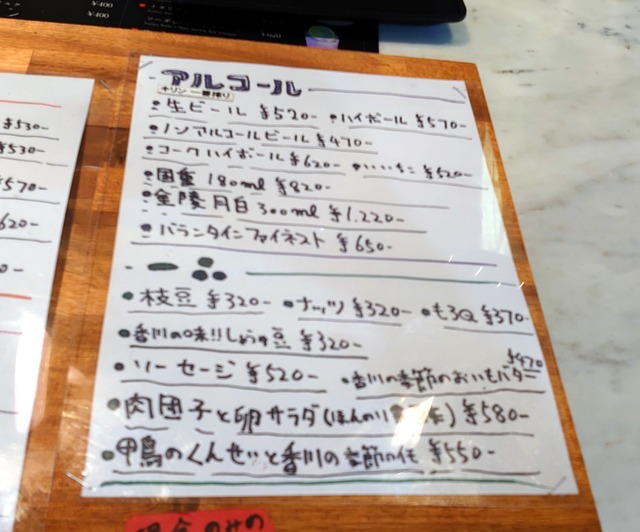 ¥400
¥400
アルコール
キリン 一番搾り
・生ビール ¥520- ・ハイボール ¥570-
・ノンアルコールビール ¥470-
・コークハイボール ¥620- ・いいちこ ¥520-
・国重 180ml ¥820-
・金陵 月白 300ml ¥1.220-
・バランタインファイネスト ¥650-
一品
・枝豆 ¥320- ・ナッツ ¥320- ・もろQ ¥370-
・香川の味!!しょうゆ豆 ¥320-
・ソーセージ ¥520- ・香川の季節のおいもバター ¥470
・肉団子と卵サラダ(ほんのり) ¥580-
・甲鳥のくんせいと香川の季節の ¥550-
¥530-
¥530-
¥570-
620-
現金のみの